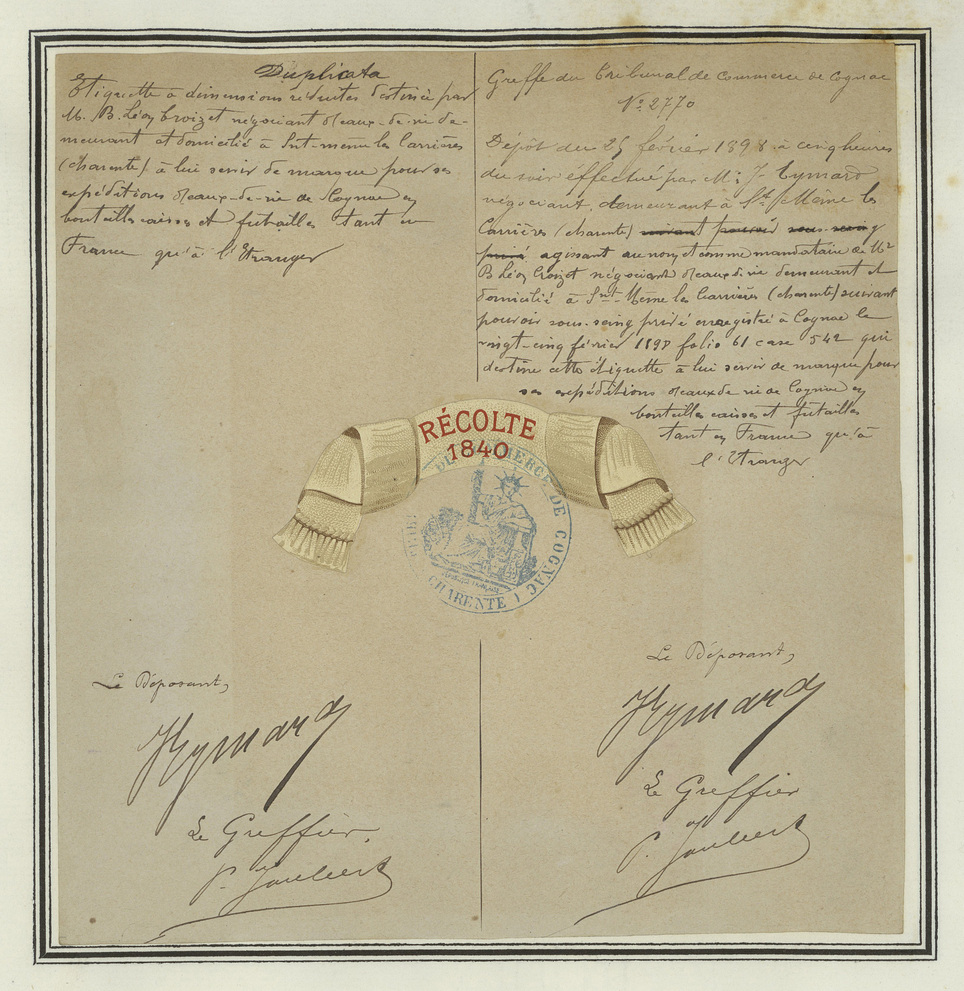 Duplicata
Etiquette à dimensions réduites destinée par
M. B. Léon Croizet négociant d'eaux-de-vie de-
meurant et domicilié à Snt-même les Carrières
(charente) à lui servir de marque pour ses
expéditions d'eaux-de-vie de Cognac en
bouteilles caisses et futailles tant en
France qu'à l'Etranger
Greffe du Tribunal de Commerce de Cognac
No 2770
Dépôt du 25 février 1898 à cinq heures
du soir éffectué par Mr J. Eymard
négociant, demeurant à St Même les
Carrières (charente) suivant pouvoir sous-seing
privé agissant au nom et comme mandataire de Mr
B. Léon Croizet négociant d'eaux de vie demeurant et
domicilié à Snt-Même les Carrières (charente) suivant
pouvoir sous-seing privé enregistré à Cognac le
vingt-cinq février 1898 folio 61 case 542 qui
destine cette étiquette à lui servir de marque pour
ses expéditions d'eaux de vie de Cognac en
bouteilles caisses et futailles
tant en France qu'à
l'Etranger
RÉCOLTE
1840
COMMERCE DE COGNAC
CHARENTE
Le Déposant,
JEymard
Le Greffier,
P. Joubert
Le Déposant,
JEymard
Le Greffier
P. Joubert